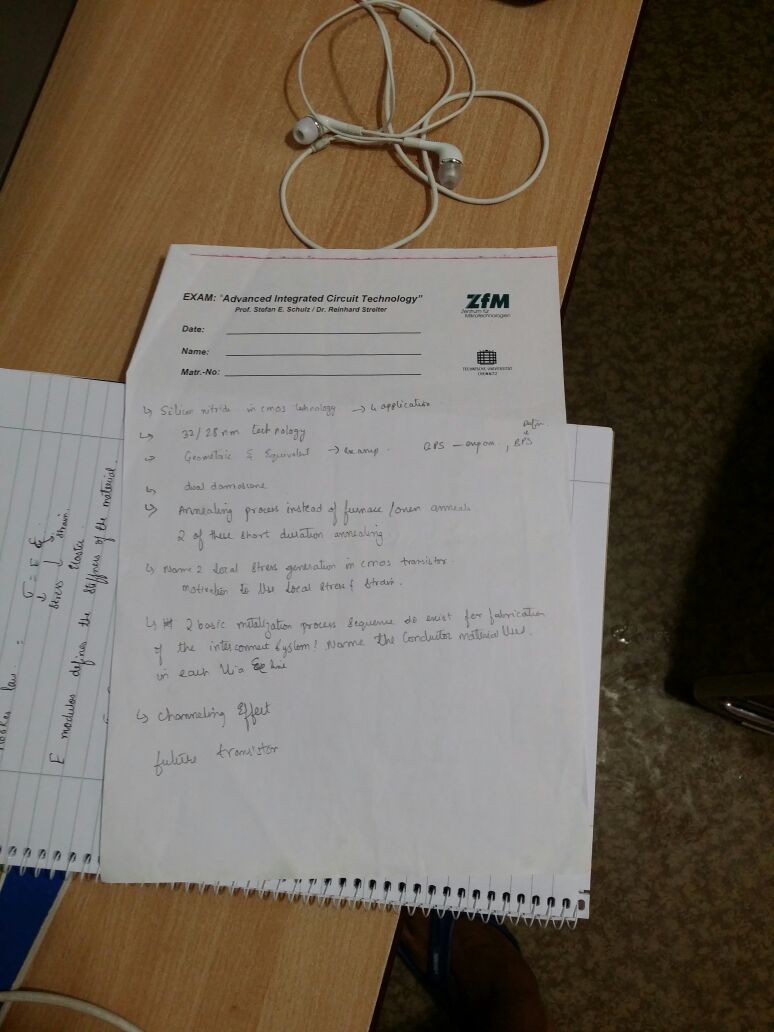 EXAM: "Advanced Integrated Circuit Technology"
Prof. Stefan E. Schulz / Dr. Reinhard Streiter
Date:
Name:
Matr.-No:
ZfM
Zentrum für
Mikrotechnologien
TECHNISCHE UNIVERSITÄT
CHEMNITZ
↳ Silicon nitride in cmos technology → 4 application
↳ 32/28 nm technology
Geometric & Equivalent →
↳ dual damascene
↳ Annealing process instead of furnace/oven anneal
2 of these short duration annealing.
↳ Name 2 local stress generation in cmos transistor.
motivation to use local stress & strain.
↳ 2 basic metalization process sequence do exist for fabrication
of the interconnect system! Name the conductor material used
in each via & line
↳ channeling Effect
future transistor
σ = E
↓
stress
strain.
Elastic
E modulus defines the stiffness of the material.
law :